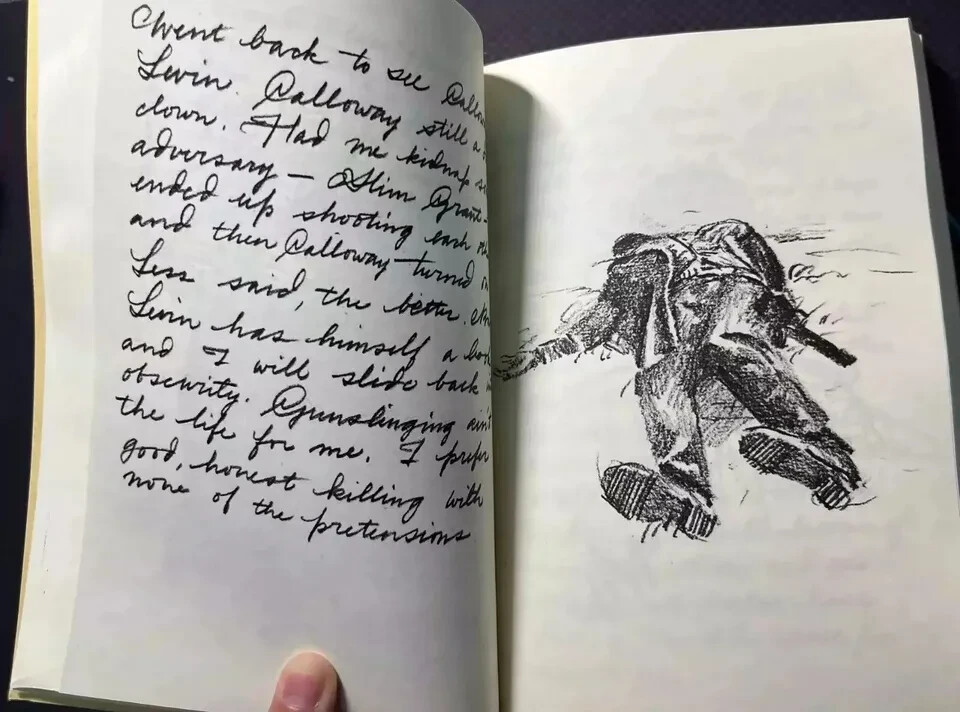 Went back to see
Levin. Calloway still a
clown. Had me kidnap
adversary — Slim Grant —
ended up shooting each
and then Calloway turned
Less said, the better.
Levin has himself a
and I will slide back
obscurity. Gunslinging ain't
the life for me. I prefer
good, honest killing with
none of the pretensions